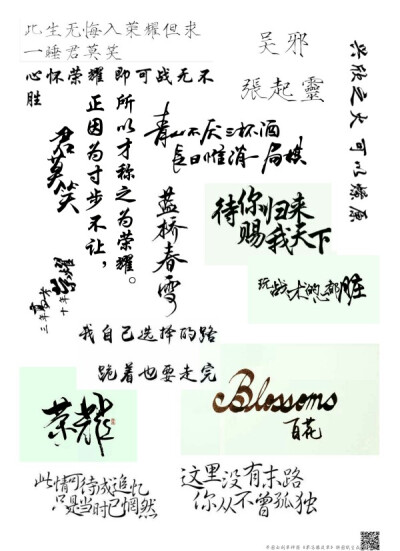 此生无悔入荣耀但求
一睡君莫笑
心怀荣耀 即可战无不
胜
吴邪
張起靈
兴欣之火 可以燎原
所以才称之为荣耀。
正因为寸步不让，
君莫笑
十年荣耀
青山不厌三杯酒
长日惟消一局棋
蓝桥春雪
待你归来
赐我天下
玩战术的心都脏
我自己选择的路
跪着也要走完
荣耀
Blossoms
百花
此情可待成追忆
只是当时已惘然
这里没有末路
你从不曾孤独